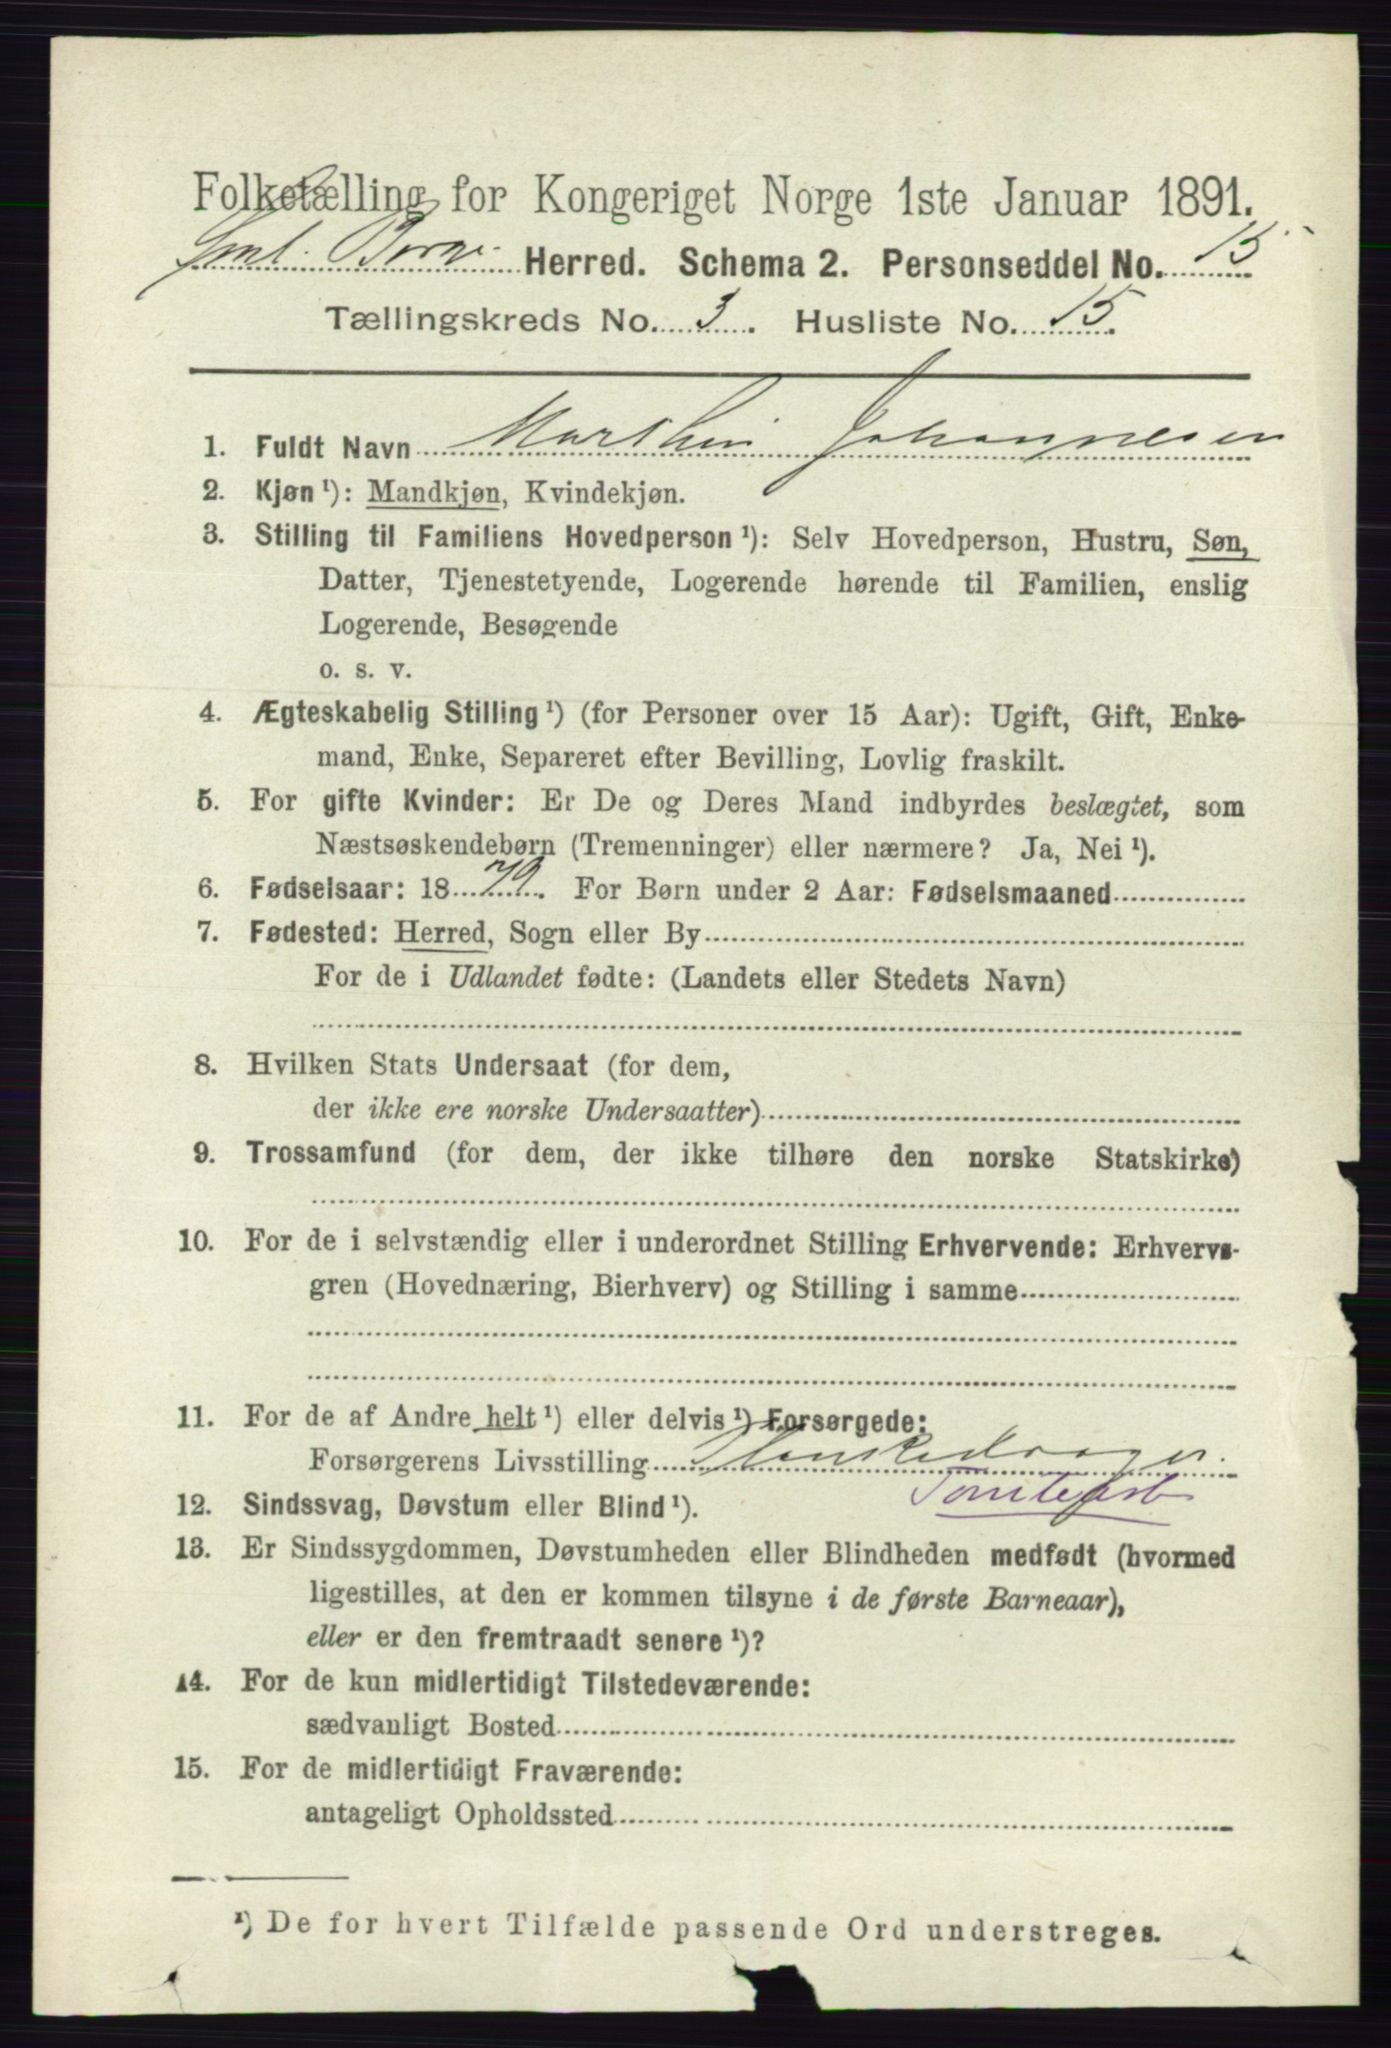 Folketælling for Kongeriget Norge 1ste Januar 1891.
Herred. Schema 2. Personseddel No. 15
Tællingskreds No. 3. Husliste No. 15.
1. Fuldt Navn Marthin Johannesen
2. Kjøn ¹): Mandkjøn, Kvindekjøn.
3. Stilling til Familiens Hovedperson ¹): Selv Hovedperson, Hustru, Søn,
Datter, Tjenestetyende, Logerende hørende til Familien, enslig
Logerende, Besøgende
o. s. v.
4. Ægteskabelig Stilling ¹) (for Personer over 15 Aar): Ugift, Gift, Enke-
mand, Enke, Separeret efter Bevilling, Lovlig fraskilt.
5. For gifte Kvinder: Er De og Deres Mand indbyrdes beslægtet, som
Næstsøskendebørn (Tremenninger) eller nærmere? Ja, Nei ¹).
6. Fødselsaar: 1879. For Børn under 2 Aar: Fødselsmaaned
7. Fødested: Herred, Sogn eller By
For de i Udlandet fødte: (Landets eller Stedets Navn)
8. Hvilken Stats Undersaat (for dem,
der ikke ere norske Undersaatter)
9. Trossamfund (for dem, der ikke tilhøre den norske Statskirke)
10. For de i selvstændig eller i underordnet Stilling Erhvervende: Erhvervs-
gren (Hovednæring, Bierhverv) og Stilling i samme
11. For de af Andre helt ¹) eller delvis ¹) Forsørgede:
Forsørgerens Livsstilling
Tomtearb
12. Sindssvag, Døvstum eller Blind ¹).
13. Er Sindssygdommen, Døvstumheden eller Blindheden medfødt (hvormed
ligestilles, at den er kommen tilsyne i de første Barneaar),
eller er den fremtraadt senere ¹)?
14. For de kun midlertidigt Tilstedeværende:
sædvanligt Bosted
15. For de midlertidigt Fraværende:
antageligt Opholdssted
¹) De for hvert Tilfælde passende Ord understreges.